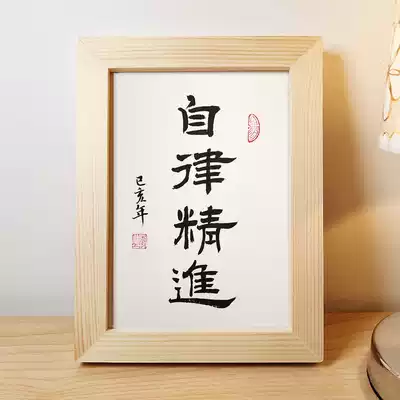 自律精進
己亥年